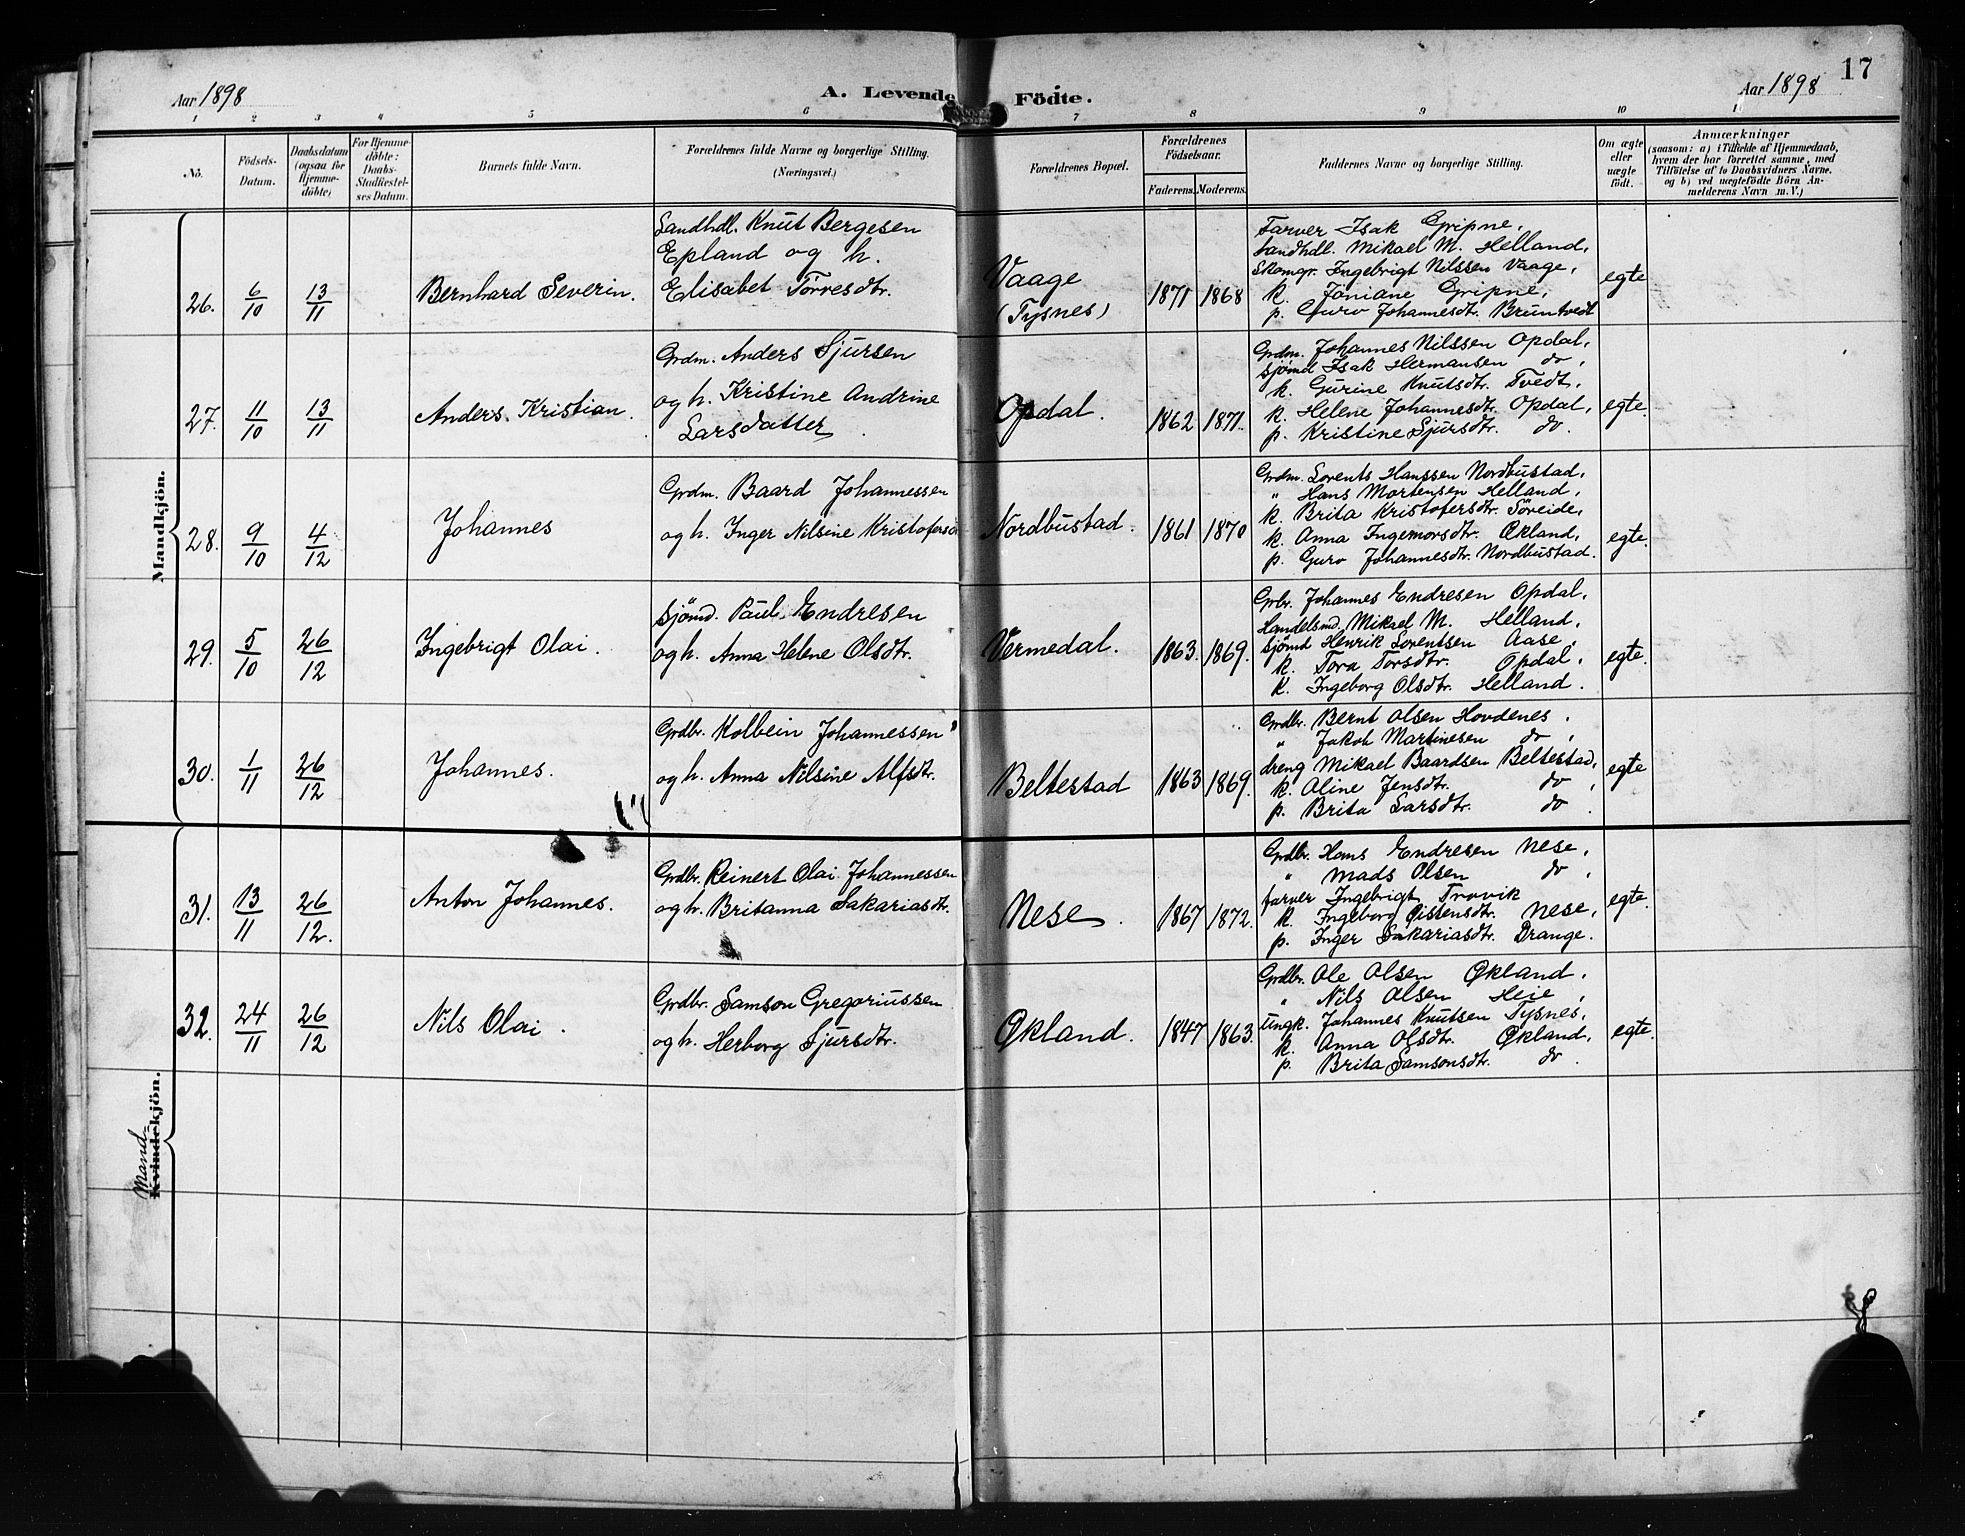 17
Aar 1898
A. Levende Födte.
Aar 1898
1 2 3 4 5 6 7 8 9 10 11
No.
Födsels-Datum.
Daabsdatum (ogsaa for Hjemme-döbte)
For Hjemme-döbte: Daabs-Stadfæstel-ses Datum.
Barnets fulde Navn.
Forældrenes fulde Navne og borgerlige Stilling.
(Næringsvei.)
Forældrenes Bopæl.
Forældrenes Födselsaar.
Faderens. Moderens.
Faddernes Navne og borgerlige Stilling.
Om ægte eller uægte födt.
Anmærkninger
(saasom: a) i Tilfælde af Hjemmedaab,
hvem der har forrettet samme, med
Tilföielse af to Daabsvidners Navne,
og b) ved uægtefödte Börn An-
melderens Navn m. V.)
Mandkjön.
26. 6/10 13/11 Bernhard Severin.
Landhdl. Knut Bergesen
Epland og h.
Elisabet Torresdtr.
Vaage
(Tysnes)
1871 1868
Farver Isak Gripne,
Landhdl. Mikael M. Helland,
Skomgr. Ingebrigt Nilssen Vaage,
k. Joniane Gripne,
p. Guro Johannesdtr. Bruntvedt
egte
27. 11/10 13/11 Anders Kristian.
Grdm. Anders Sjursen
og h. Kristine Andrine
Larsdatter
Opdal.
1862 1871.
Grdm. Johannes Nilssen Opdal,
Sjömd Isak Hermansen do,
k. Gurine Knutsdtr. Tvedt,
k. Helene Johannesdtr. Opdal,
p. Kristine Sjursdtr. do.
egte.
28. 9/10 4/12 Johannes
Grdm. Baard Johannessen
og h. Inger Nilsine Kristofersd
Nordbustad.
1861 1870
Grdm. Lorents Hanssen Nordbustad,
" Hans Mortensen Helland,
k. Brita Kristofersdtr. Söreide,
k. Anna Ingemorsdtr. Økland,
p. Guro Johannesdtr. Nordbustad.
egte.
29. 5/10 26/12 Ingebrigt Olai.
Sjömd. Paul Endresen
og h. Anna Helene Olsdtr.
Vermedal.
1863. 1869.
Grbr. Johannes Endresen Opdal,
Handelsmd. Mikael M. Helland,
Sjömd Henrik Lorentsen Aase,
k. Tora Torsdtr. Opdal,
k. Ingeborg Olsdtr. Helland.
egte.
30. 1/11 26/12 Johannes.
Grdbr. Kolbein Johannessen
og h. Anna Nilsine Alfsdtr.
Beltestad
1863 1869.
Grdbr. Bernt Olsen Hovdenes,
" Jakob Martinesen do,
dreng Mikael Baardsen Beltestad,
k. Aline Jensdtr. do,
p. Brita Larsdtr. do.
egte
Mand-
Kvindekjön.
31. 13/11 26/12. Anton Johannes.
Grdbr. Reinert Olai Johannessen
og h. Britanna Sakariasdtr.
Nese.
1867 1872.
Grdbr. Hans Endresen Nese,
" Mads Olsen do,
farver Ingebrigt Trovik
k. Ingeborg Øistensdtr. Nese,
p. Inger Sakariasdtr. Drange.
egte.
32. 24/11 26/12 Nils Olai.
Grdbr. Samson Gregoriussen
og h. Herborg Sjursdtr.
Økland.
1847 1863.
Grdbr. Ole Olsen Økland,
" Nils Olsen Heie,
Ungk. Johannes Knutsen Tysnes,
k. Anna Olsdtr. Økland,
p. Brita Samsonsdtr. do.
egte.